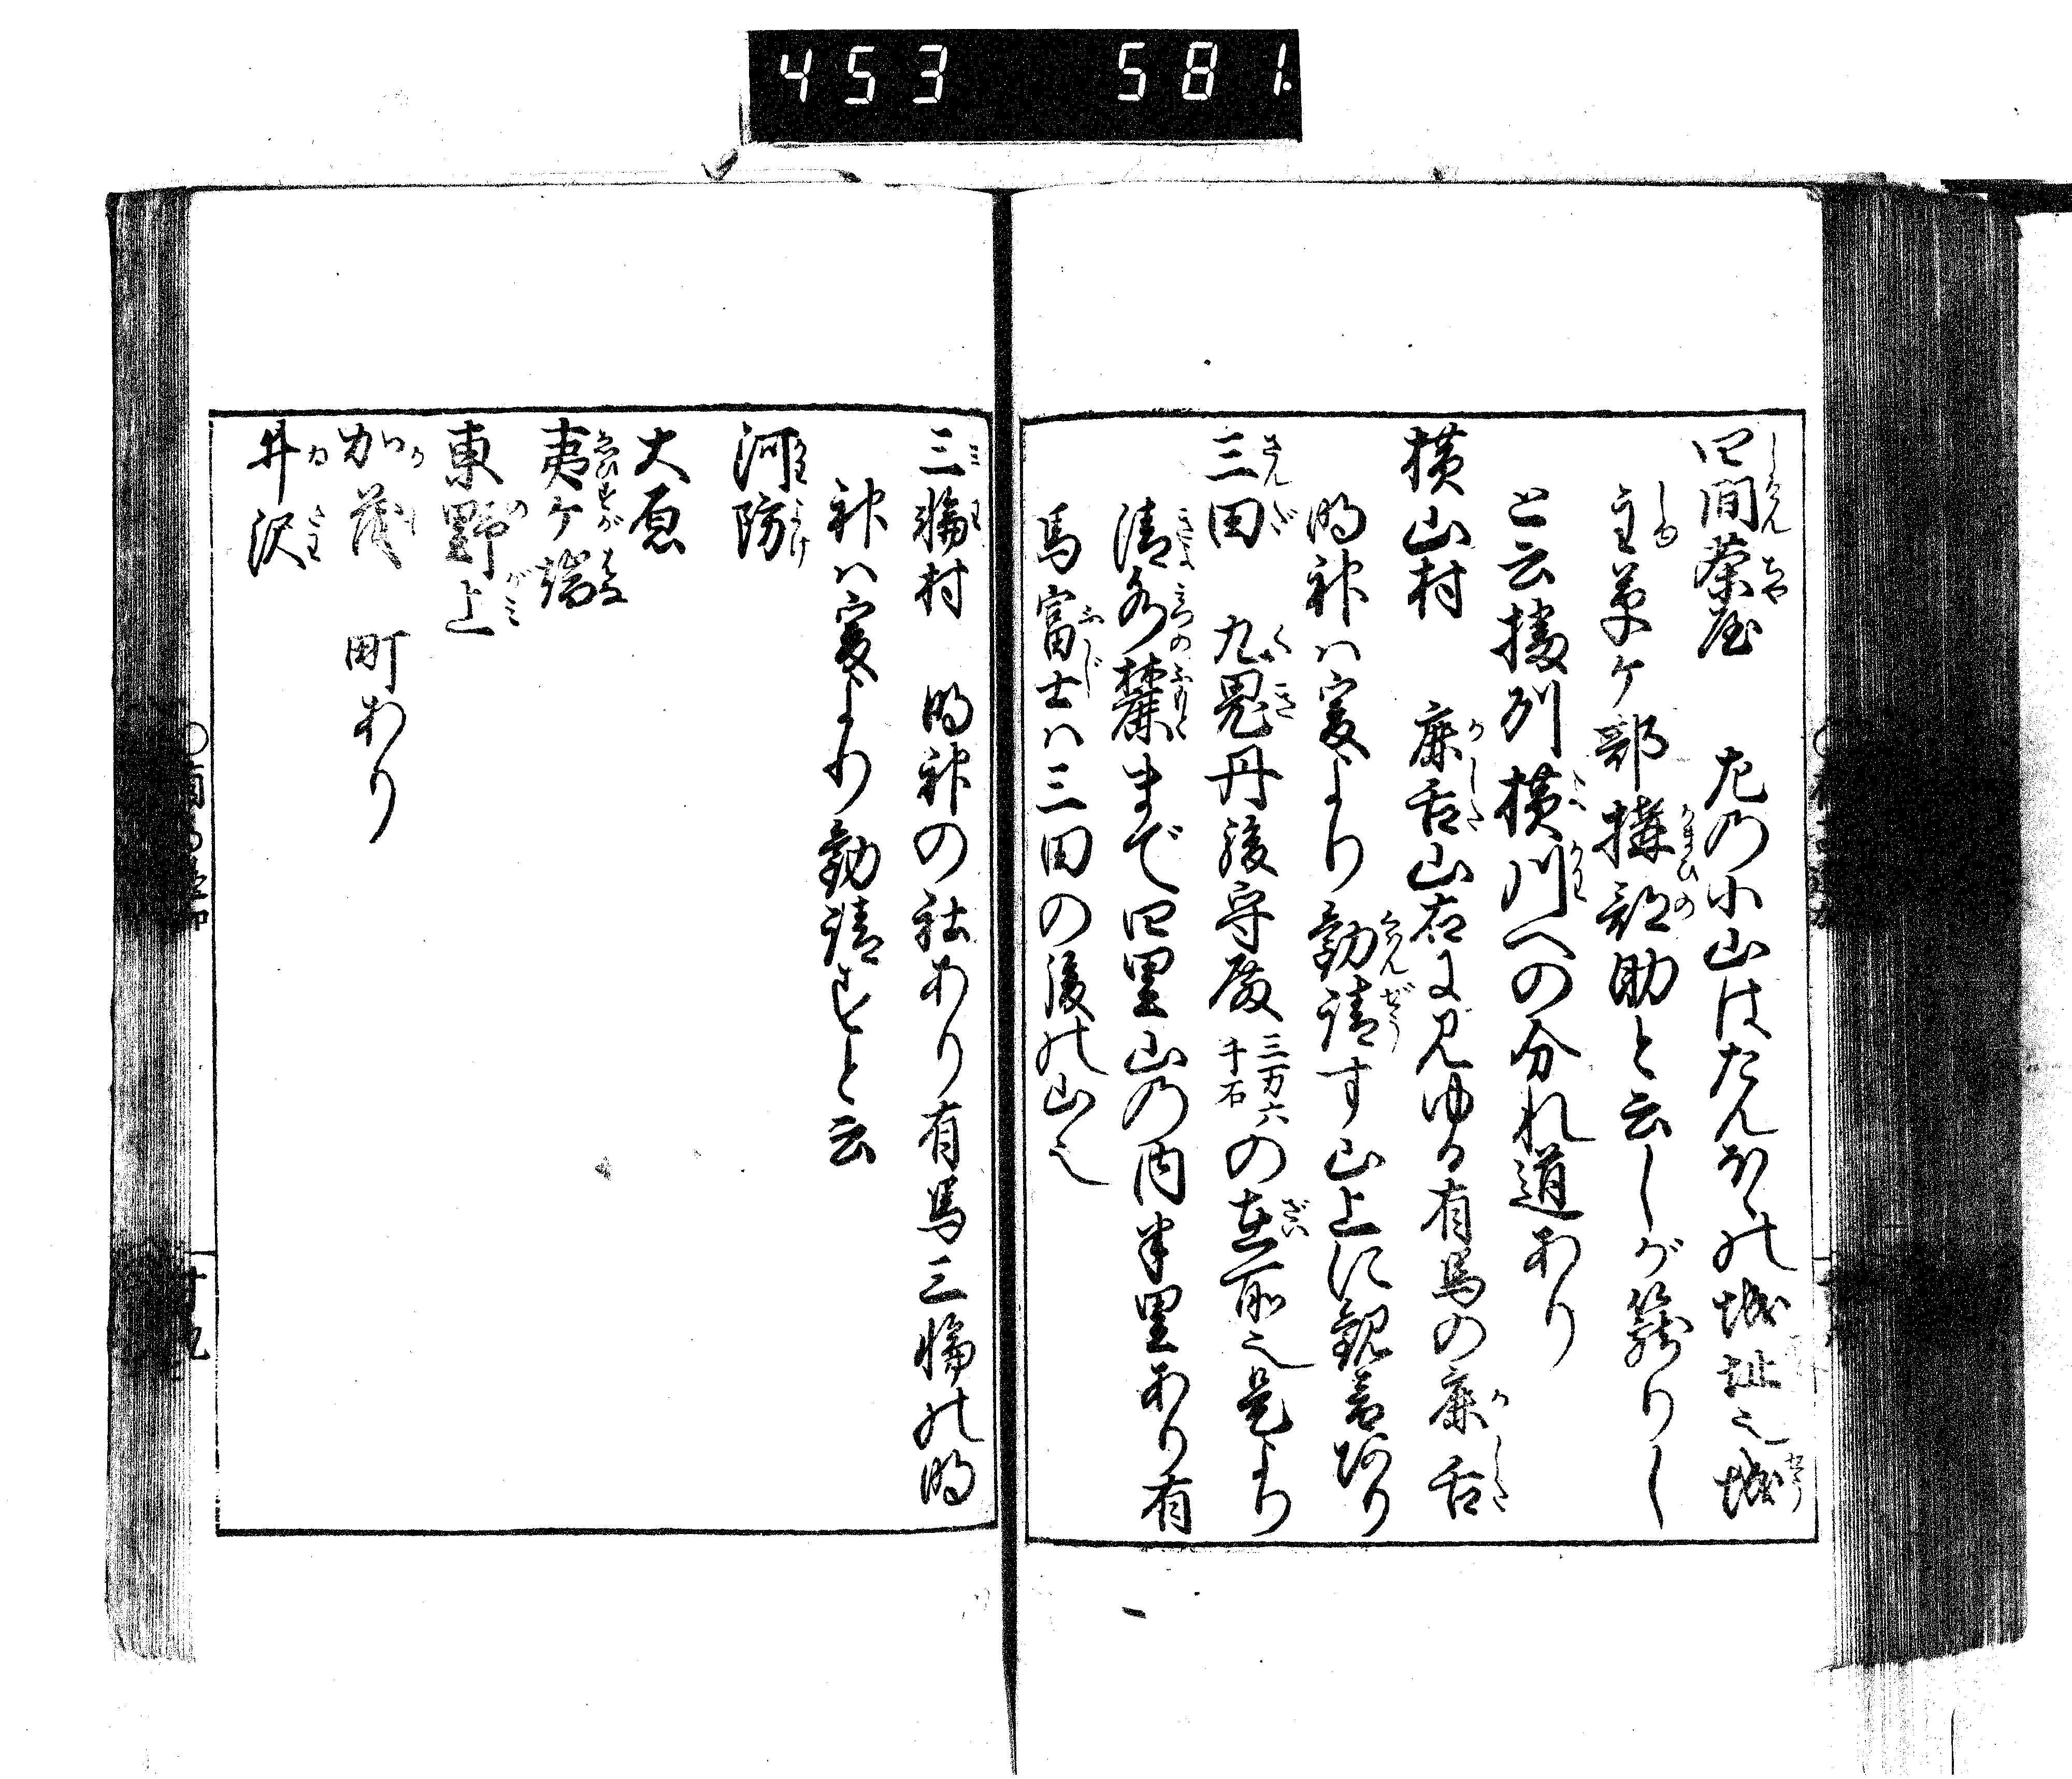 453 581
四間茶屋 左乃小山はたんほの城址也城
主草ケ部構部助と云しが籠りし
と云播州横川への分れ道あり
横山村 麻舌山右に見ゆる有馬の麻舌
明神ハ爰より勧請す山上に観音堂あり
三田 九鬼丹後守殿 三万六千石 の在所也是より
清水麓まで四里山乃内半里あり有
馬富士ハ三田の後の山也
三輪村 明神の社あり有馬三輪の明
神ハ爰より勧請すと云
河除
大原
夷ケ端
東野上
加茂 町あり
井沢